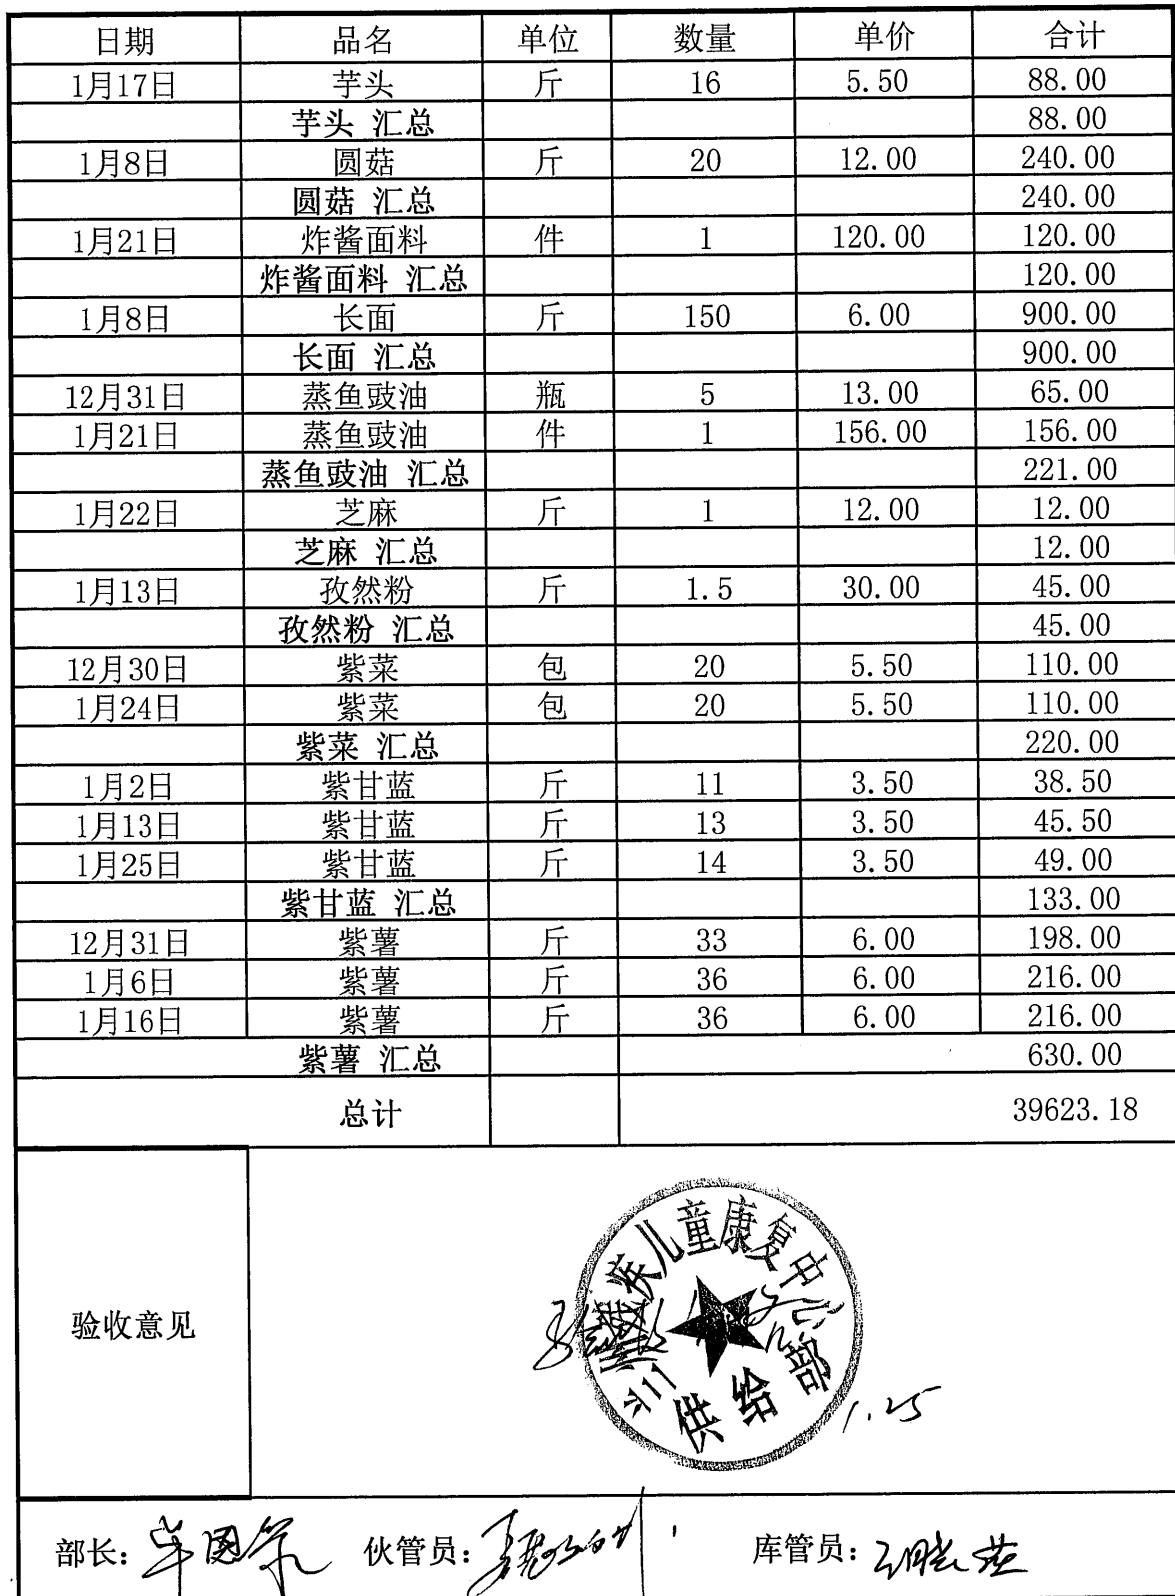 日期 品名 单位 数量 单价 合计
1月17日 芋头 斤 16 5.50 88.00
芋头 汇总 88.00
1月8日 圆菇 斤 20 12.00 240.00
圆菇 汇总 240.00
1月21日 炸酱面料 件 1 120.00 120.00
炸酱面料 汇总 120.00
1月8日 长面 斤 150 6.00 900.00
长面 汇总 900.00
12月31日 蒸鱼豉油 瓶 5 13.00 65.00
1月21日 蒸鱼豉油 件 1 156.00 156.00
蒸鱼豉油 汇总 221.00
1月22日 芝麻 斤 1 12.00 12.00
芝麻 汇总 12.00
1月13日 孜然粉 斤 1.5 30.00 45.00
孜然粉 汇总 45.00
12月30日 紫菜 包 20 5.50 110.00
1月24日 紫菜 包 20 5.50 110.00
紫菜 汇总 220.00
1月2日 紫甘蓝 斤 11 3.50 38.50
1月13日 紫甘蓝 斤 13 3.50 45.50
1月25日 紫甘蓝 斤 14 3.50 49.00
紫甘蓝 汇总 133.00
12月31日 紫薯 斤 33 6.00 198.00
1月6日 紫薯 斤 36 6.00 216.00
1月16日 紫薯 斤 36 6.00 216.00
紫薯 汇总 630.00
总计 39623.18
验收意见
疾儿童康复中心
供给部
1.25
部长: 伙管员: 库管员: